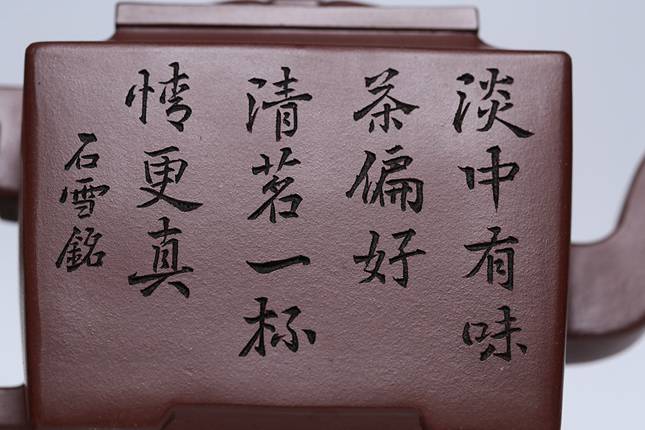 淡中有味
茶偏好
清茗一杯
情更真
石雪銘